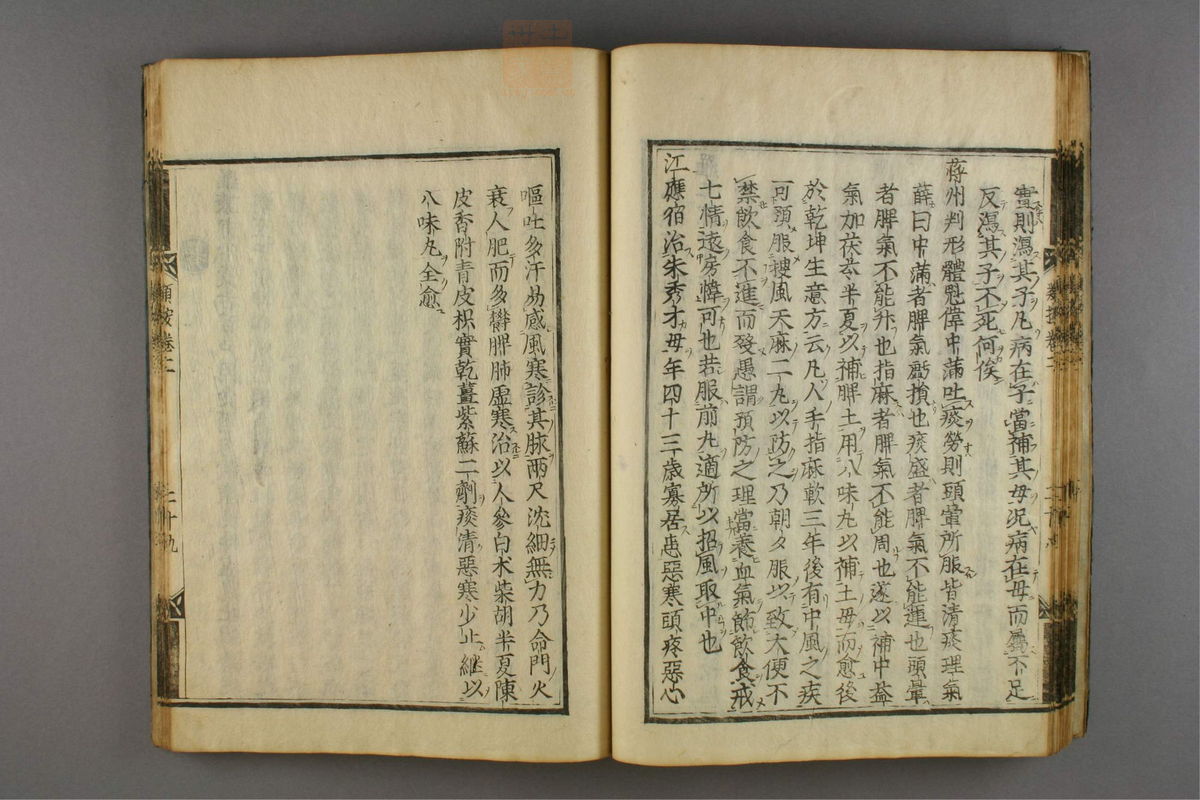 實則瀉其子凡病在子當補其母況病在母而屬不足
反瀉其子不死何俟
蔣州判形體魁偉中滿吐痰勞則頭暈所服皆清痰理氣
薛曰中滿者脾氣虧損也痰盛者脾氣不能運也頭暈
者脾氣不能升也指麻者脾氣不能周也遂以補中益
氣加茯苓半夏以補脾土用八味丸以補土母而愈後
於乾坤生意方云凡人手指麻軟三年後有中風之疾
可預服搜風天麻二丸以防之乃朝夕服以致大便不
禁飲食不進而發愚謂預防之理當養血氣節飲食戒
七情遠房幃可也若服前丸適所以招風取中也
江應宿治朱秀才母年四十三歲寡居患惡寒頭疼惡心
嘔吐多汗易感風寒診其脉兩尺沈細無力乃命門火
衰人肥而多欝脾肺虛寒治以人參白术柴胡半夏陳
皮香附青皮枳實乾薑紫蘇二劑痰清惡寒少止繼以
八味丸全愈
類按卷二
二十九